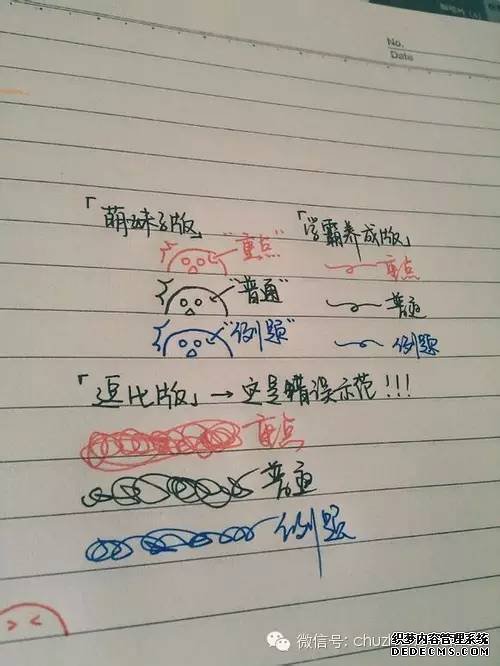 No.
Date
「萌妹子版」 「学霸养成版」
"重点" 重点
"普通" 普通
"例题" 例题
「逗比版」→这是错误示范!!!
重点
普通
例题
> <
微信号: chuzh
织梦内容管理系统
DEDECMS.COM